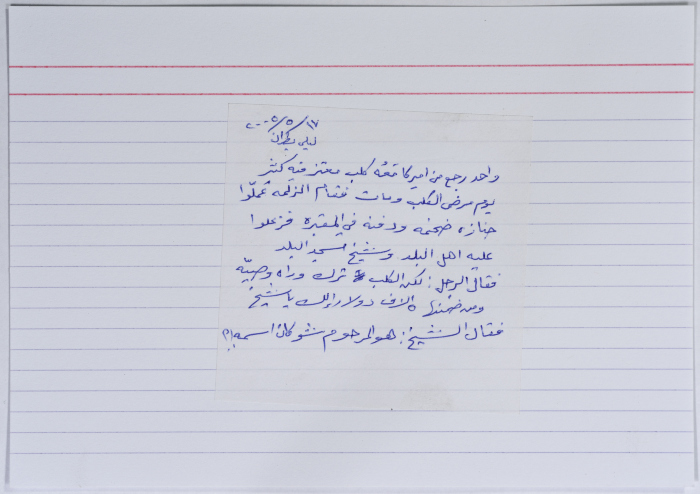 ١٧/٥/٢٠٠٥
ليلى بكران
واحد رجع من اميركا معُه كلب معتز فيه كثير
يوم مرض الكلب ومات فقام الزلمه عملّوا
جنازه ضخمه ودفنه في المقبره فزعلوا
عليه اهل البلد وشيخ مسجد البلد
فقال الرجل: لكن الكلب ترك وراه وصيّه
ومن ضمنها ٥ الاف دولار إلك يا شيخ
فقال الشيخ: هو المرحوم شو كان اسمه!؟